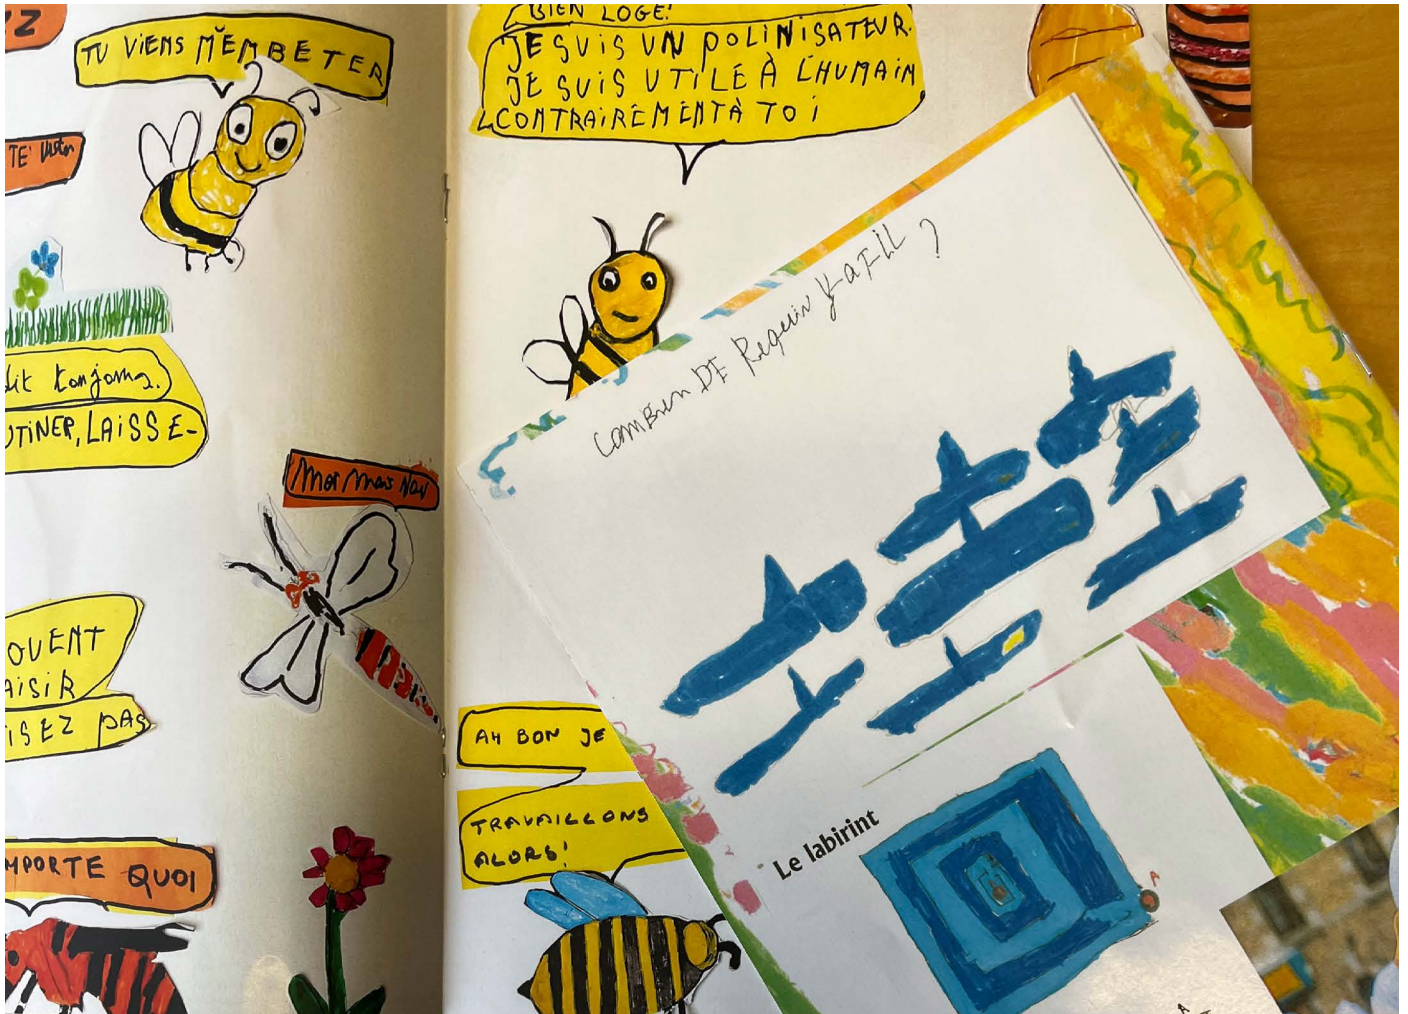 Z
TU VIENS M'EMBETER
TE
dit
TINER, LAISSE-
Moi Mais Non
OUENT
AISIR
ISEZ PAS
MPORTE QUOI
BIEN LOGE!
JE SUIS UN POLINISATEUR.
JE SUIS UTILE À L'HUMAIN
CONTRAIREMENT À TOI
AH BON JE
TRAVAILLONS
ALORS!
COMBIEN DE Requin Y-a-T-iL ?
Le labirint
A
A